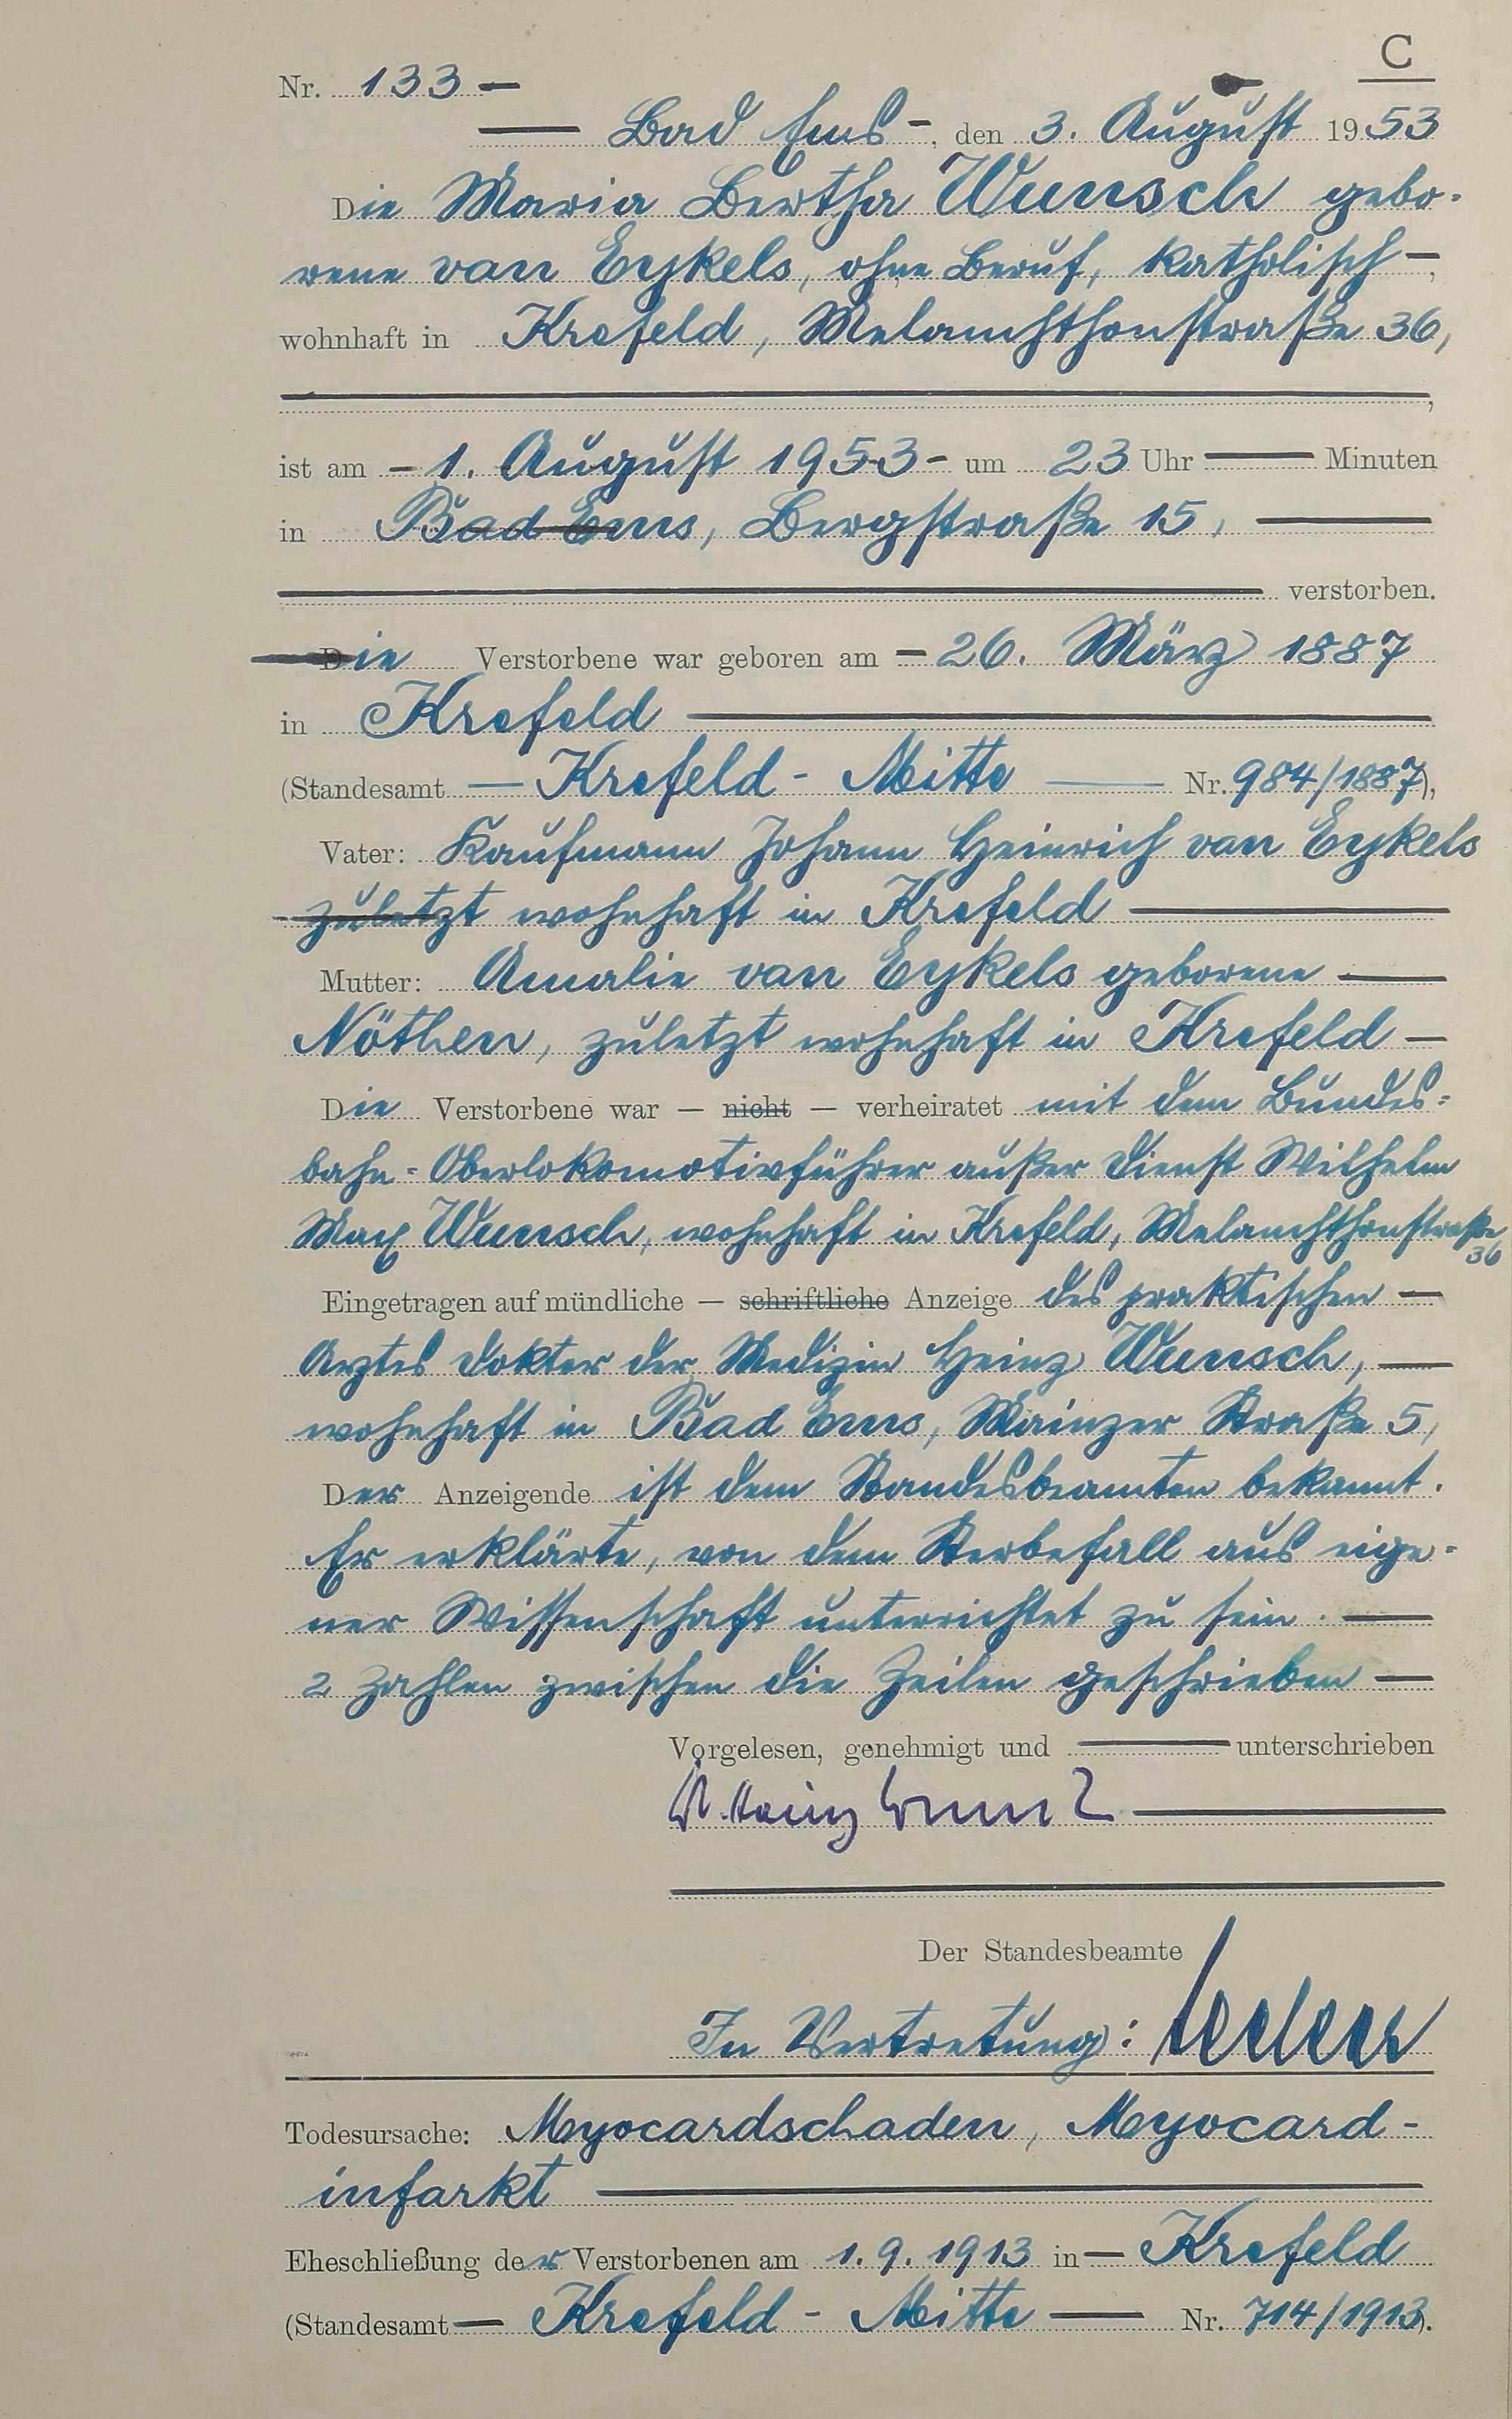 C
Nr. 133 —
— Bad Ems -, den 3. August 1953
Die Maria Bertha Wunsch gebo-
rene van Eykels, ohne Beruf, katholisch -,
wohnhaft in Krefeld, Melanchthonstraße 36,
,
ist am - 1. August 1953 - um 23 Uhr — Minuten
in Bad Ems, Bergstraße 15, —
— verstorben.
Die Verstorbene war geboren am - 26. März 1887
in Krefeld —
(Standesamt — Krefeld - Mitte — Nr. 984/1887),
Vater: Kaufmann Johann Heinrich van Eykels
zuletzt wohnhaft in Krefeld —
Mutter: Amalie van Eykels geborene —
Nöthen, zuletzt wohnhaft in Krefeld —
Die Verstorbene war — nicht — verheiratet mit dem Bundes=
bahn=Oberlokomotivführer außer Dienst Wilhelm
Max Wunsch, wohnhaft in Krefeld, Melanchthonstraße
36
Eingetragen auf mündliche — schriftliche Anzeige des praktischen —
Arztes Doktor der Medizin Heinz Wunsch, —
wohnhaft in Bad Ems, Mainzer Straße 5,
Der Anzeigende ist dem Standesbeamten bekannt.
Er erklärte, von dem Sterbefall aus eige-
ner Wissenschaft unterrichtet zu sein. —
2 Zahlen zwischen die Zeilen geschrieben —
Vorgelesen, genehmigt und — unterschrieben
Dr. Heinz Wunsch —
Der Standesbeamte
In Vertretung:
Todesursache: Myocardschaden, Myocard-
infarkt —
Eheschließung der Verstorbenen am 1.9.1913 in — Krefeld
(Standesamt — Krefeld - Mitte — Nr. 714/1913).